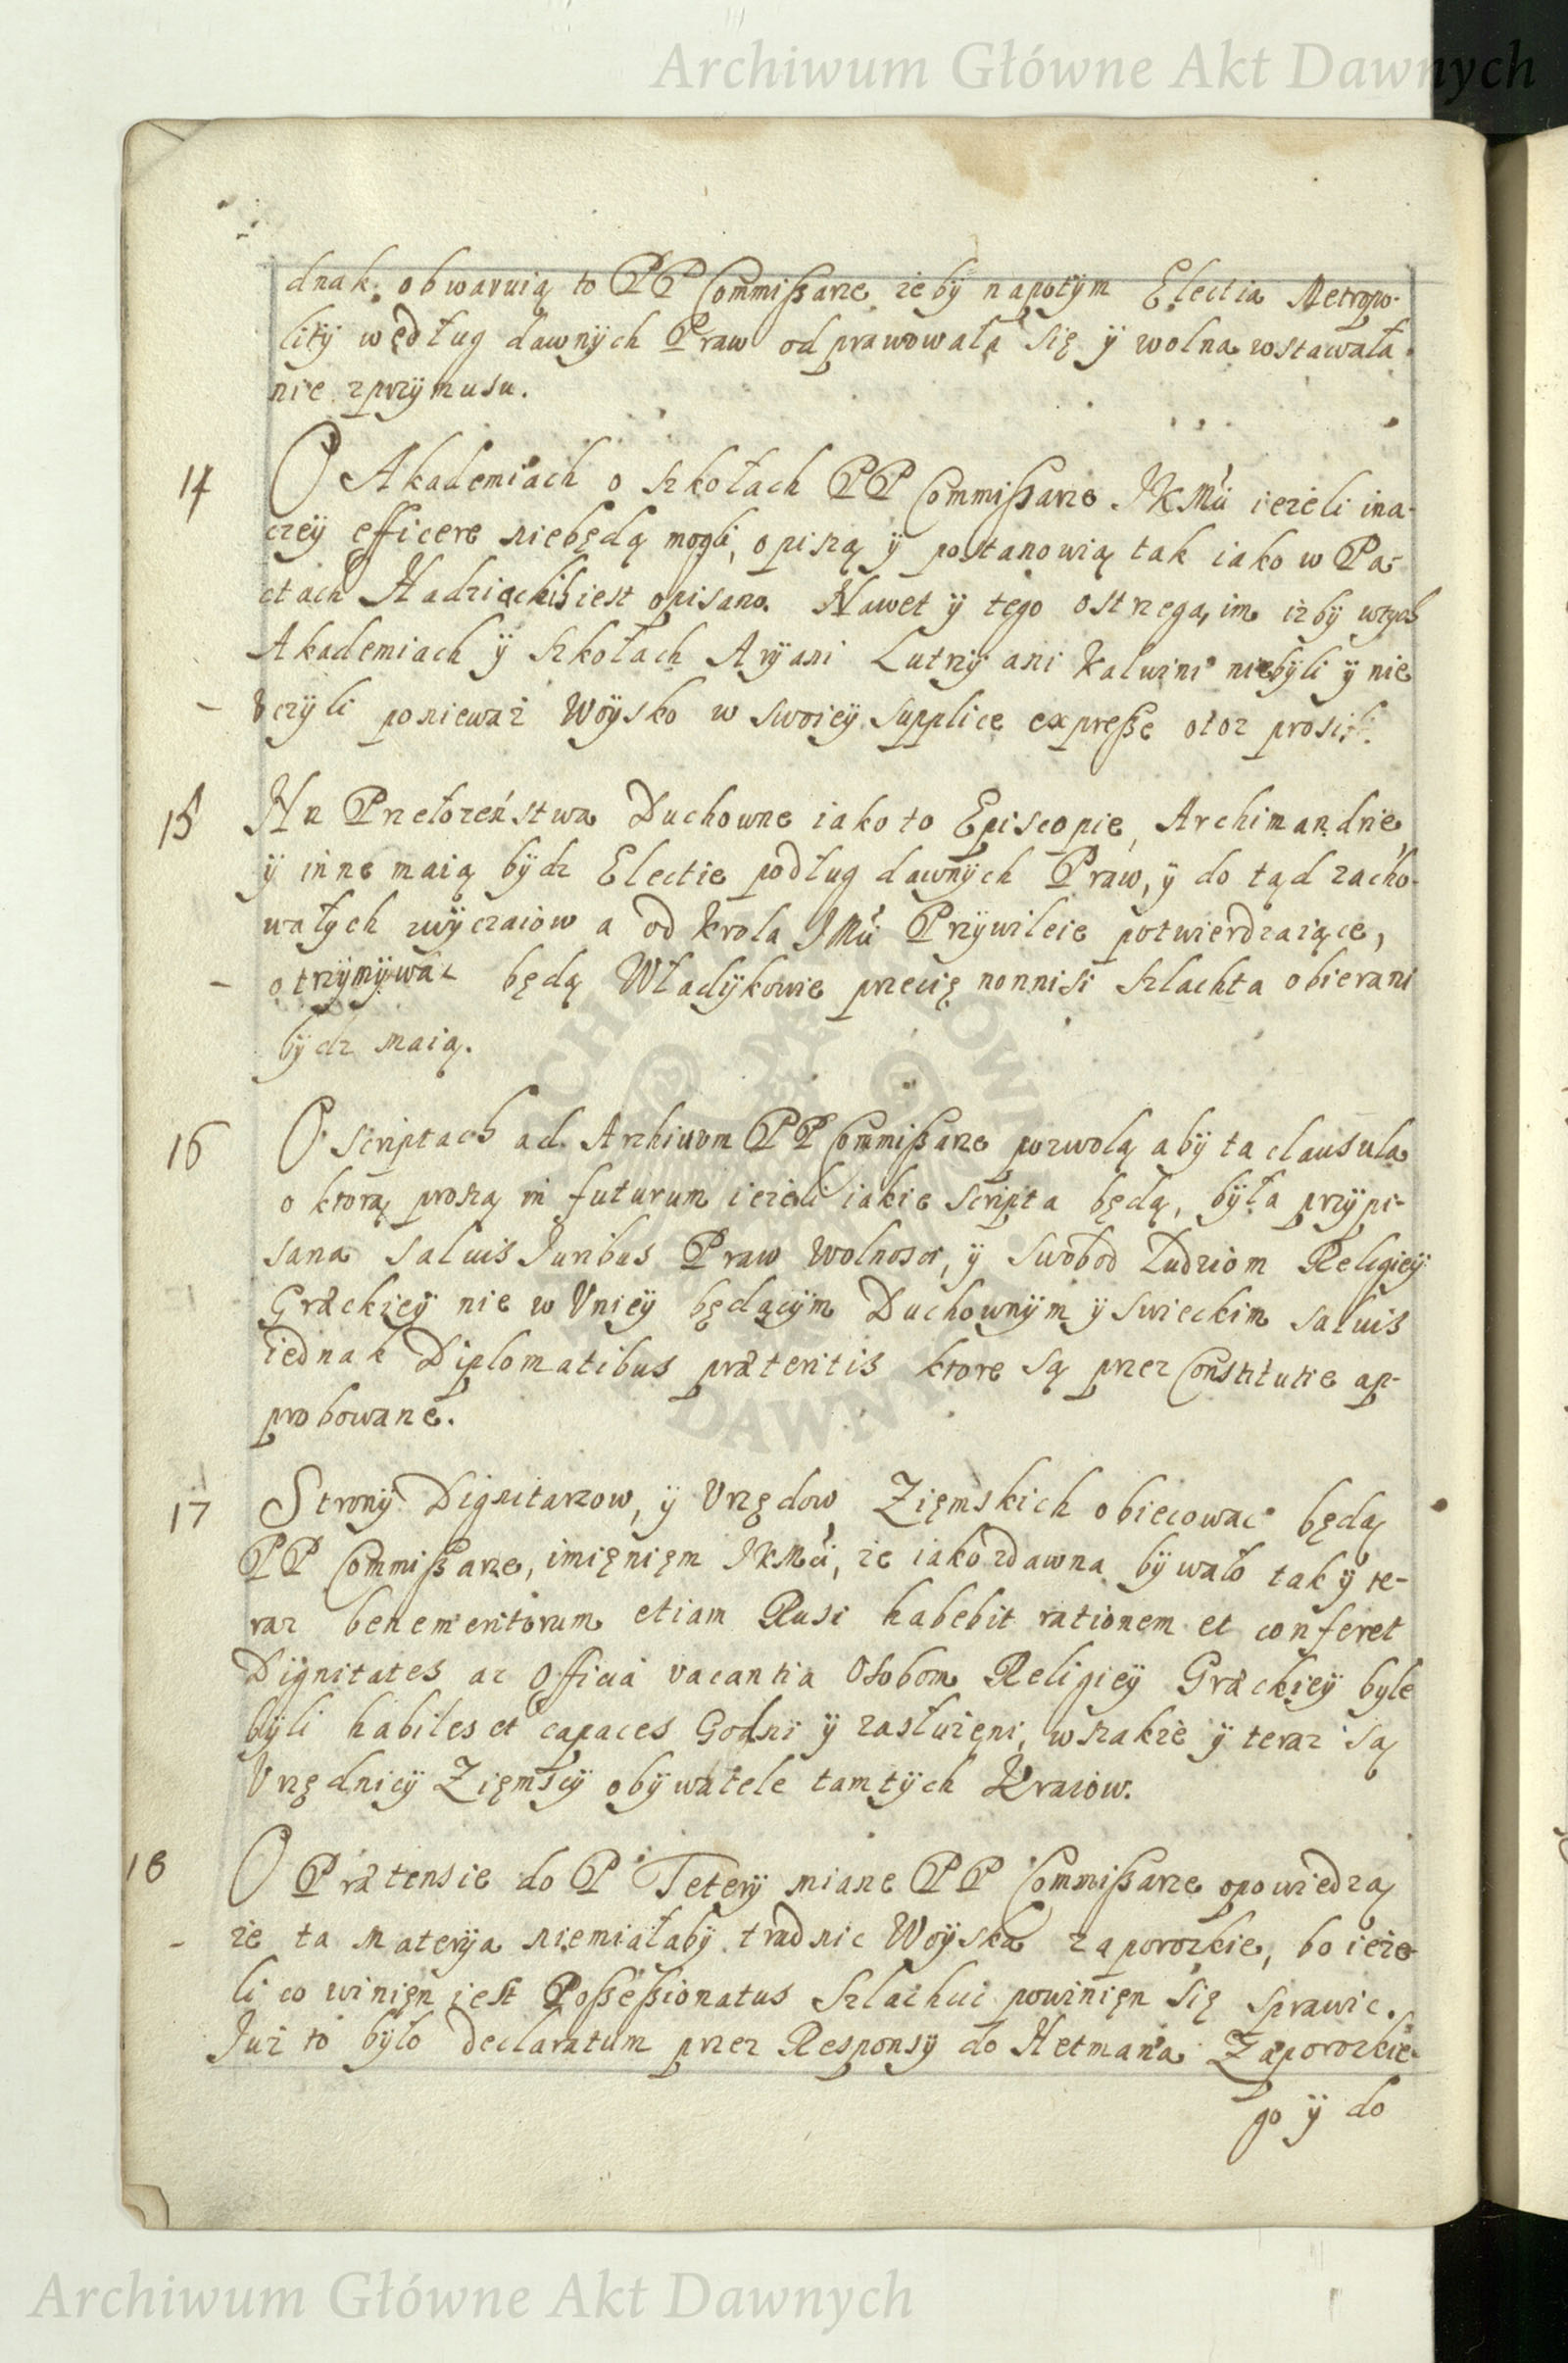 Archiwum Główne Akt Dawnych
dnak obwaruią to PP Commißarze żeby napotym Electia Metropo-
lity według dawnych Praw odprawowała się y wolna wstawała
nie zprzymusu.
14 O Akademiach o szkołach PP Commißarze JKMći ieżeli ina-
czey efficere niebędą mogli, opiszą y postanowią tak iako w Pa-
ctach Hadziackich iest opisano. Nawet y tego ostrzegą im iżby wtych
Akademiach y szkołach Aryani Lutrzy ani Kalwini niebyli y nie
Vczyli ponieważ Woysko w swoiey supplice expreße otoż prosi
15 Na Przełożeństwa Duchowne iako to Episcopie, Archimandrie,
y inne maią bydz Electie podług dawnych Praw, y do tąd zacho-
wałych zwyczaiow a od Krola JMći Przywileie potwierdzaiące,
otrzymywac będą Władykowie przecię nonnisi szlachta obierani
bydz maią.
16 O scriptach ad Archiuum PP Commißarze pozwolą aby ta clausula
o ktorą proszą in futurum ieżeli iakie scripta będą, była przypi-
sana saluis Juribus Praw Wolnosci, y swobod Ludziom Religiey
Græckiey nie w Vniey będącym Duchownym y swieckim saluis
iednak Diplomatibus præteritis ktore są przez Constitutie ap-
probowane.
17 Strony Dignitarzow, y Vrzędow Zięmskich obiecowac będą
PP Commißarze, imięnięm JKMći, że iako zdawna bywało tak y te-
raz benemeritorum etiam Rusi habebit rationem et conferet
Dignitates ac Officia vacantia Osobom Religiey Græckiey byle
byli habiles et capaces Godni y zasłużęni, wszakże y teraz są
Vrzędnicy Zięmscy obywatele tamtych Kraiow.
18 O Prætensie do P Tetery miane PP Commißarze opowiedzą
że ta materya niemiałaby trudnic Woyska zaporozkie, bo ieże-
li co winięn iest Poßeßionatus szlachcic powinięn się sprawic.
Już to było declaratum przez Responsy do Hetmana Zaporozkie-
go y do
Archiwum Główne Akt Dawnych